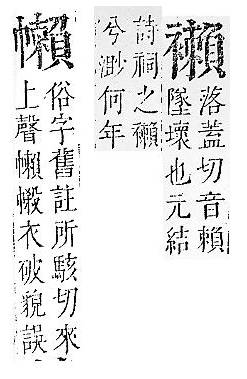 襰
落蓋切音賴
墜壞也元結
詩祠之襰
兮渺何年
俗字舊註所駭切來
上聲衣破貌誤